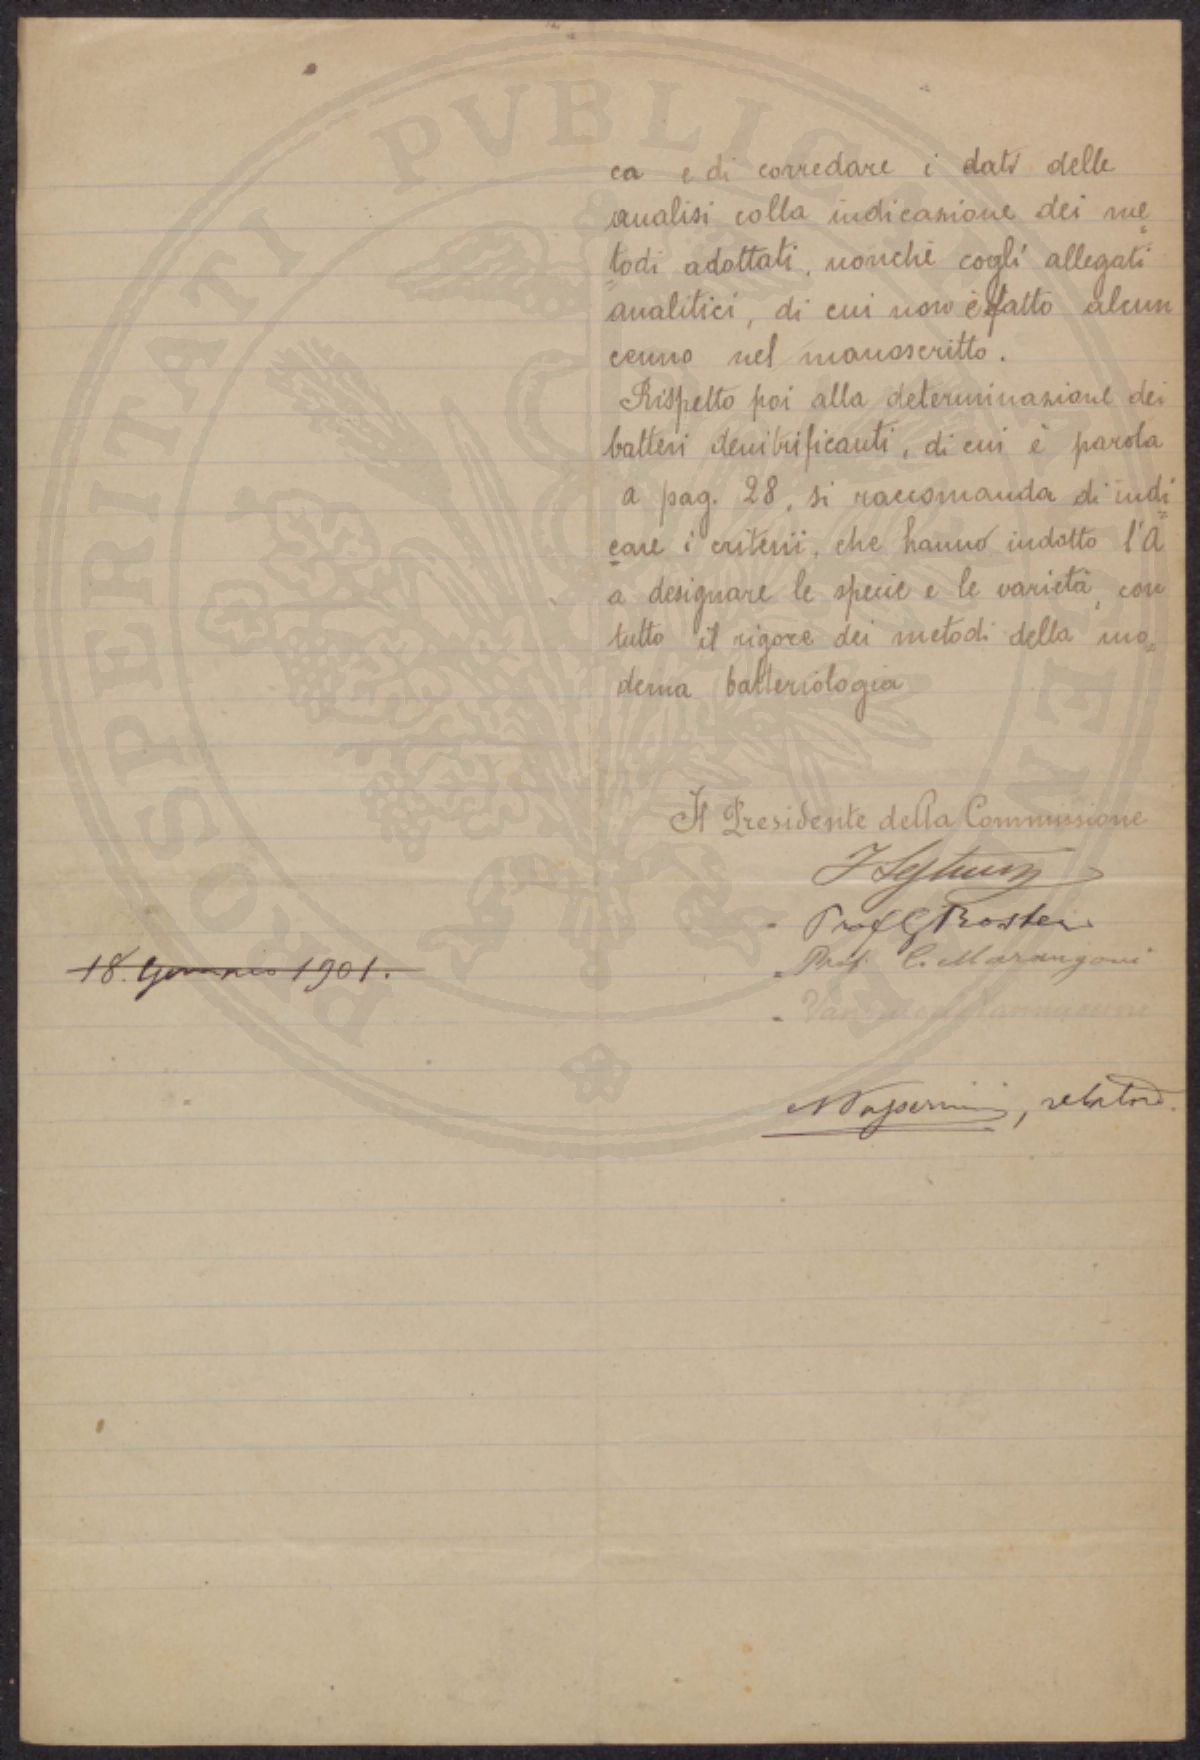 ca e di corredare i dati delle
analisi colla indicazione dei me=
todi adottati, nonchè cogli allegati
analitici, di cui non è fatto alcun
cenno nel manoscritto.
Rispetto poi alla determinazione dei
batteri denitrificanti, di cui è parola
a pag. 28, si raccomanda di indi=
care i criterii, che hanno indotto l'A
a designare le specie e le varietà, con
tutto il rigore dei metodi della mo=
derna batteriologia
Il Presidente della Commissione
Prof G Roster
Prof. C. Marangoni
18. Gennaio 1901.
N Passerini, relatore.
PROSPERITATI PVBLICAE